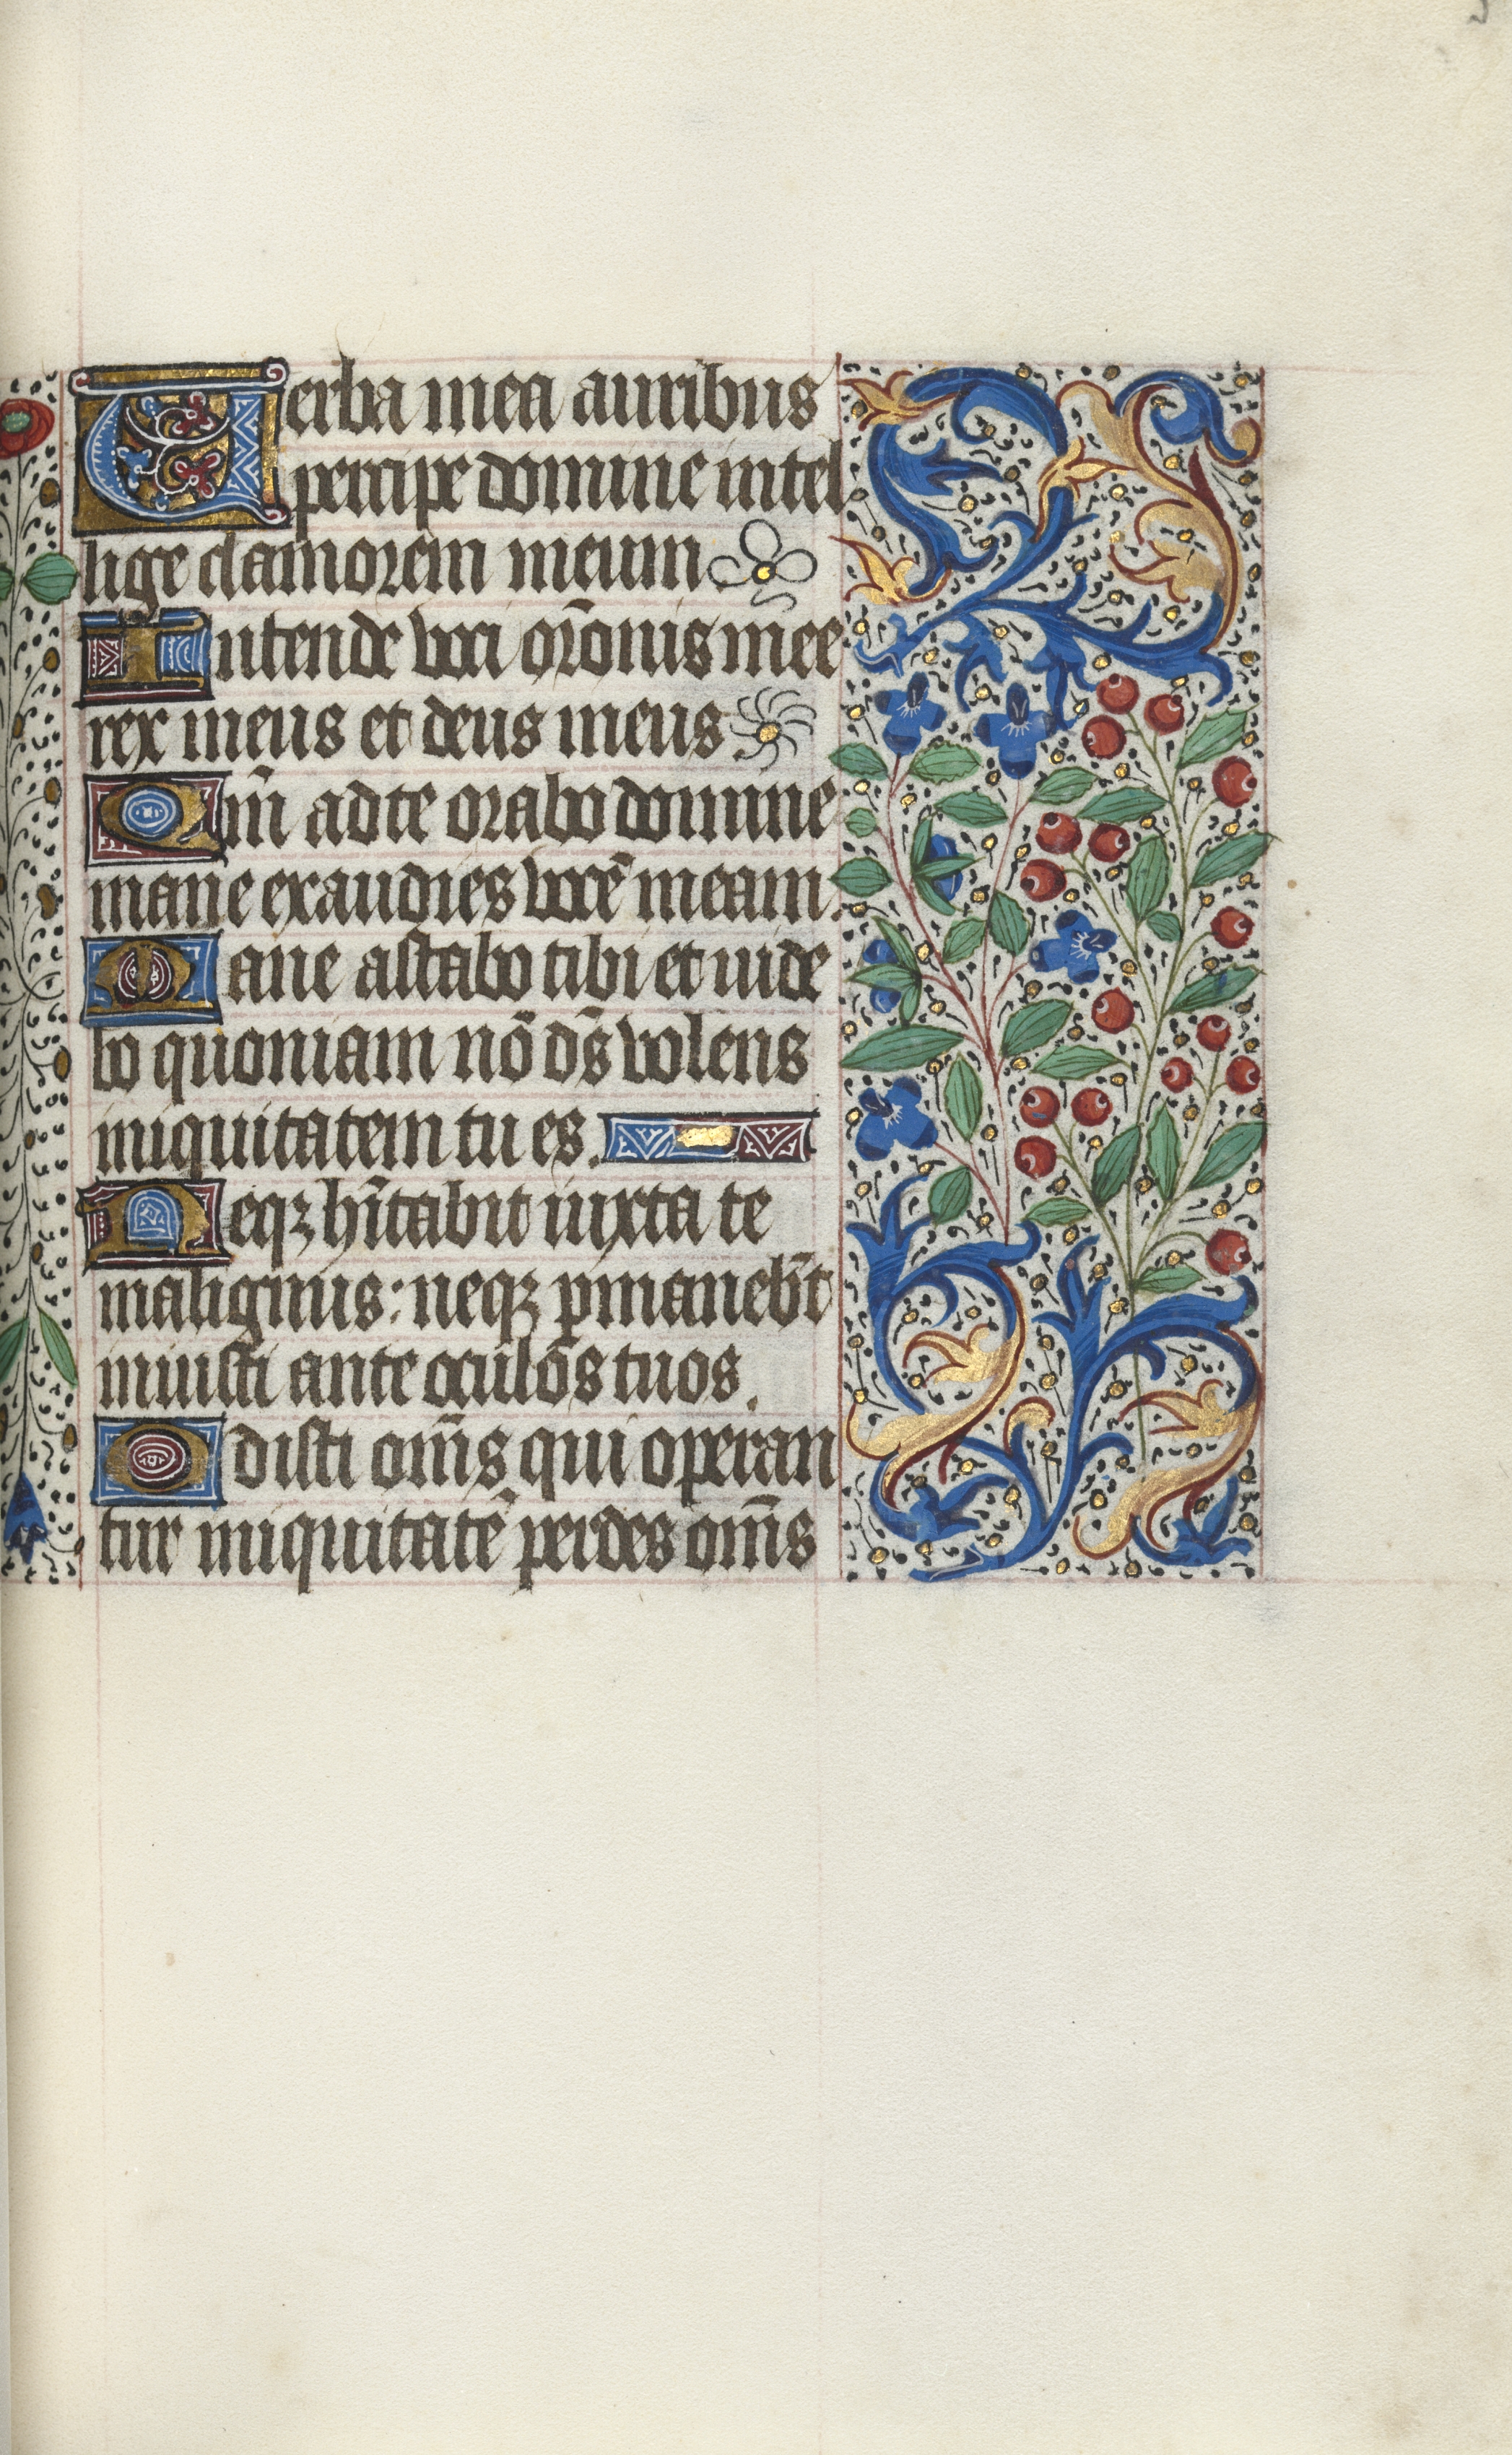 Uerba mea auribus
percipe domine intel
lige clamorem meum
Intende voci orõnis mee
rex meus et deus meus.
Qm̃ ad te orabo domine
mane exaudies vocẽ meam.
Mane astabo tibi et uide
bo quoniam nõ ds̃ volens
iniquitatem tu es.
Neqꝫ hĩtabit iuxta te
malignus: neqꝫ ꝑmanebt̃
iniusti ante oculos tuos.
Odisti om̃s qui operan
tur iniquitatẽ perdes om̃s